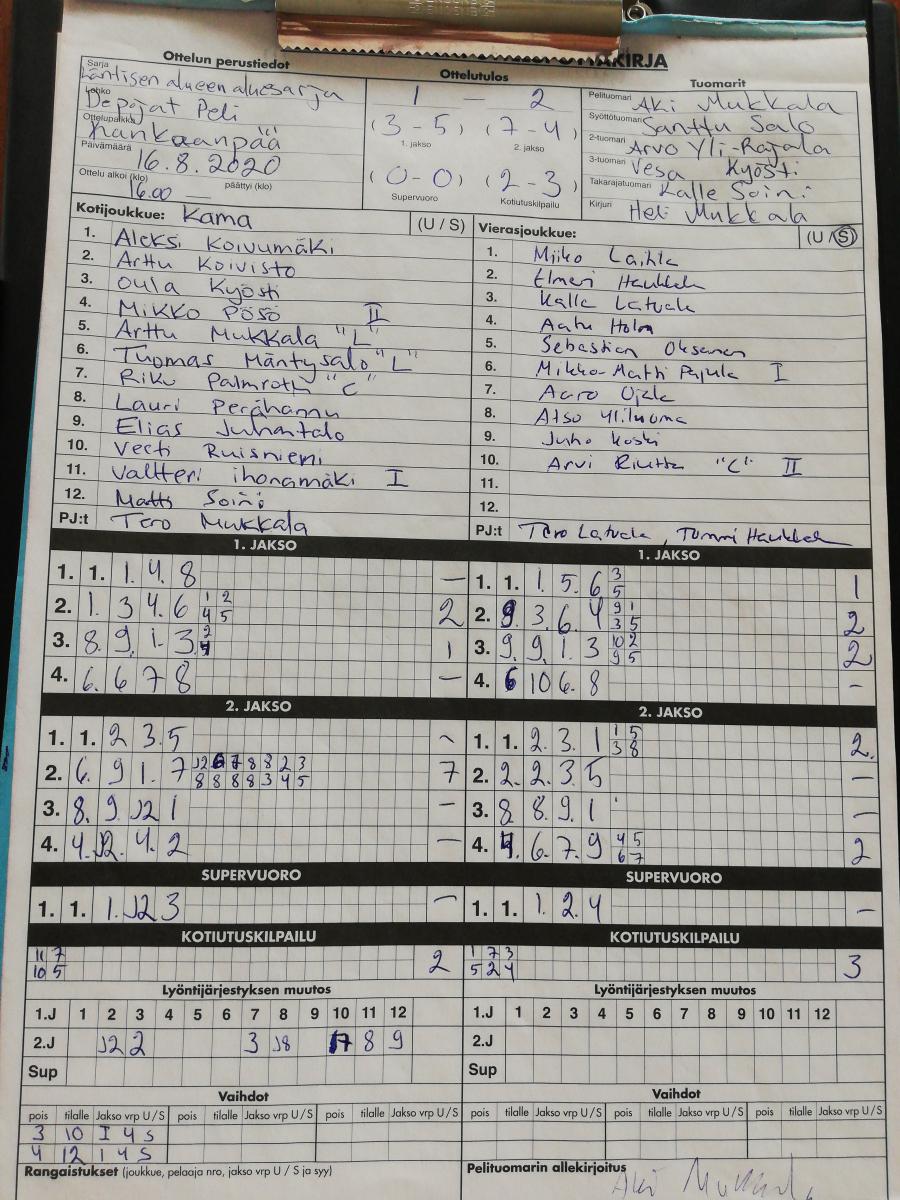 KIRJA
Ottelun perustiedot
Ottelutulos
Tuomarit
Sarja
Läntisen alueen aluesarja
Lohko
Depojat Peli
Ottelupaikka
Kankaanpää
Päivämäärä
16.8.2020
Ottelu alkoi (klo) päättyi (klo)
16.00
1 – 2
(3-5) (7-4)
1. jakso 2. jakso
(0-0) (2-3)
Supervuoro Kotiutuskilpailu
Pelituomari Aki Mukkala
Syöttötuomari Santtu Salo
2-tuomari Arvo Yli-Rajala
3-tuomari Vesa Kyösti
Takarajatuomari Kalle Soini
Kirjuri Heli Mukkala
Kotijoukkue: Kama (U / S)
1. Aleksi Koivumäki
2. Arttu Koivisto
3. Oula Kyösti
4. Mikko Pösö II
5. Arttu Mukkala "L"
6. Tuomas Mäntysalo "L"
7. Riku Palmroth "C"
8. Lauri Perähannu
9. Elias Juhantalo
10. Veeti Ruisniemi
11. Valtteri ihonamäki I
12. Matts Soini
PJ:t Tero Mukkala
Vierasjoukkue: (U / S)
1. Miiko Laihla
2. Elmeri Haukkala
3. Kalle Latvala
4. Aatu Holm
5. Sebastian Oksanen
6. Mikko-Matti Pajula I
7. Aaro Ojala
8. Atso Yliluoma
9. Juho Koski
10. Arvi Riutta "C" II
11.
12.
PJ:t Tero Latvala, Tommi Haukkala
1. JAKSO
1. 1. 1. 4. 8 –
2. 1. 3 4. 6 1 2 2
4 5
3. 8. 9. 1. 3. 2 1
4
4. 6. 6 7 8 –
2. JAKSO
1. 1. 2 3. 5 –
2. 6. 9 1. 7 12 6 7 8 8 2 3 7
8 8 8 8 3 4 5
3. 8. 9. 12 1 –
4. 4. 12. 4. 2 –
SUPERVUORO
1. 1. 1. 12 3 –
KOTIUTUSKILPAILU
11 7 2
10 5
Lyöntijärjestyksen muutos
1.J 1 2 3 4 5 6 7 8 9 10 11 12
2.J 12 2 3 18 17 8 9
Sup
Vaihdot
pois tilalle Jakso vrp U / S pois tilalle Jakso vrp U / S pois tilalle Jakso vrp U / S
3 10 I 4 S
4 12 1 4 S
Rangaistukset (joukkue, pelaaja nro, jakso vrp U / S ja syy)
1. JAKSO
1. 1. 1. 5. 6 3 1
5
2. 9. 3. 6. 4 9 1 2
3 5
3. 9. 9. 1. 3 10 2 2
9 5
4. 6 10 6. 8 –
2. JAKSO
1. 1. 2. 3. 1 1 5 2.
3 8
2. 2. 2. 3. 5 –
3. 8 8. 9. 1 –
4. 4. 6. 7. 9 4 5 2
6 7
SUPERVUORO
1. 1. 1. 2. 4 –
KOTIUTUSKILPAILU
1 7 3 3
5 2 4
Lyöntijärjestyksen muutos
1.J 1 2 3 4 5 6 7 8 9 10 11 12
2.J
Sup
Vaihdot
pois tilalle Jakso vrp U / S pois tilalle Jakso vrp U / S pois tilalle Jakso vrp U / S
Pelituomarin allekirjoitus
Aki Mukkala